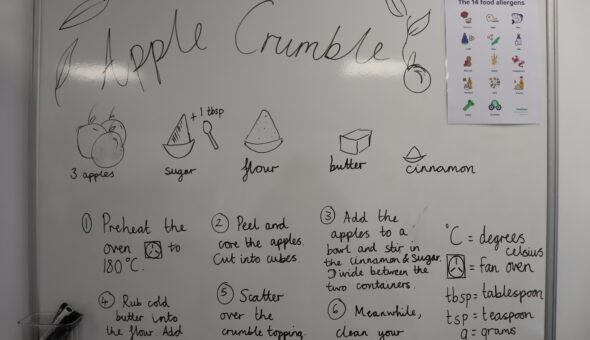 Apple Crumble
The 14 food allergens
+ 1 tbsp
3 apples
sugar
flour
butter
cinnamon
① Preheat the
oven to
180°C.
② Peel and
core the apples.
Cut into cubes.
③ Add the
apples to a
bowl and stir in
the cinnamon & sugar.
Divide between the
two containers.
④ Rub cold
butter into
the flour Add
⑤ Scatter
over the
crumble topping.
⑥ Meanwhile,
clean your
°C = degrees
celsius
= fan oven
tbsp = tablespoon
tsp = teaspoon
g = grams